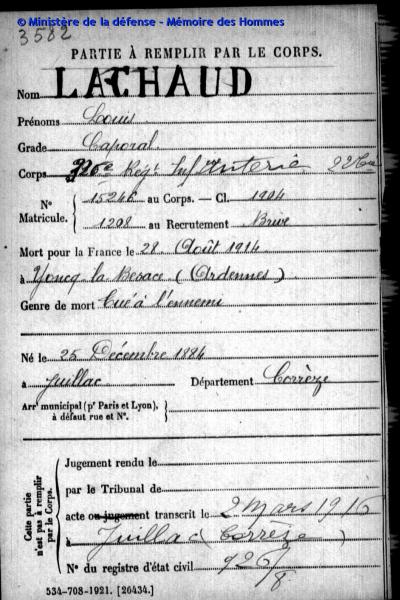 © Ministère de la défense - Mémoire des Hommes
3582
PARTIE À REMPLIR PAR LE CORPS.
Nom LACHAUD
Prénoms Louis
Grade Caporal
Corps 126e Régt Inf Infanterie 22 Cie
N° Matricule. { 15246 au Corps. — Cl. 1904
1208 au Recrutement Brive
Mort pour la France le 28 Août 1914
à Yoncq la Besace (Ardennes)
Genre de mort Tué à l'ennemi
Né le 25 Décembre 1884
à Juillac Département Corrèze
Arr^t municipal (p^r Paris et Lyon), à défaut rue et N°. }
Cette partie n'est pas à remplir par le Corps.
Jugement rendu le
par le Tribunal de
acte ou jugement transcrit le 2 Mars 1916
à Juillac (Corrèze)
N° du registre d'état civil 926/8
534-708-1921. [26434.]